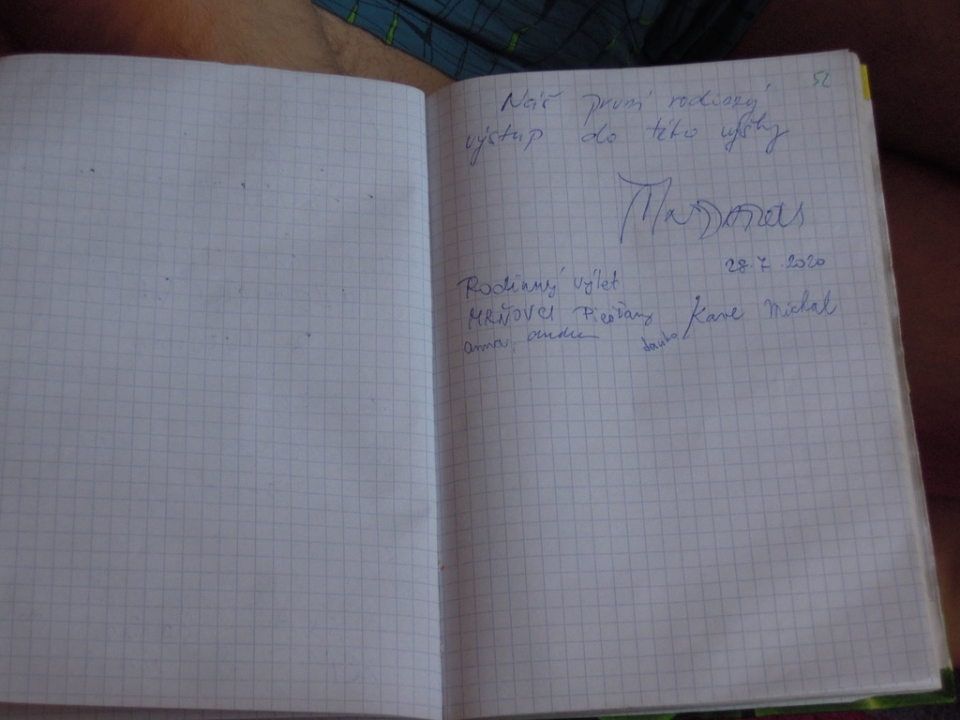 52
Náš první rodinný
výstup do této výšky
28.7.2020
Rodinný výlet
MRŇOVCI Piešťany Karel Michal
anna,